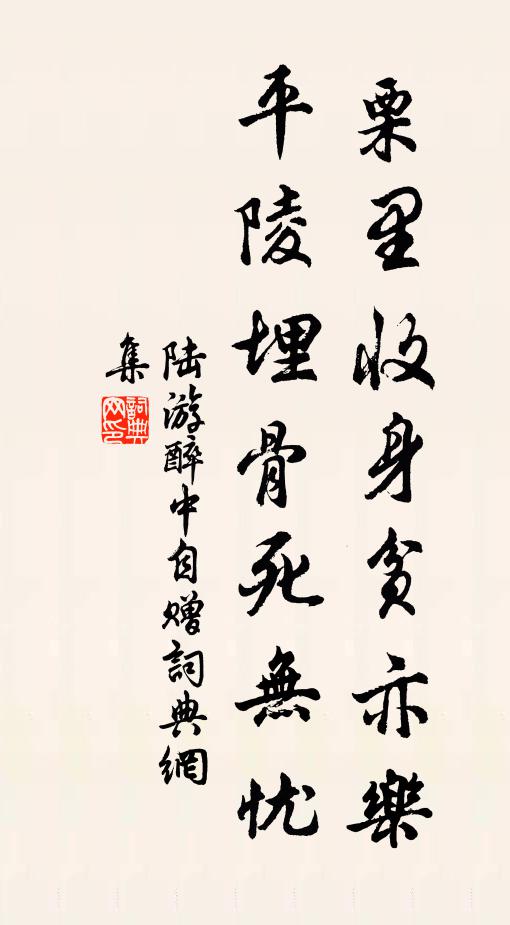 栗里收身貧亦樂
平陵埋骨死無忧
陆游醉中自赠詞典網
集
詞典网印